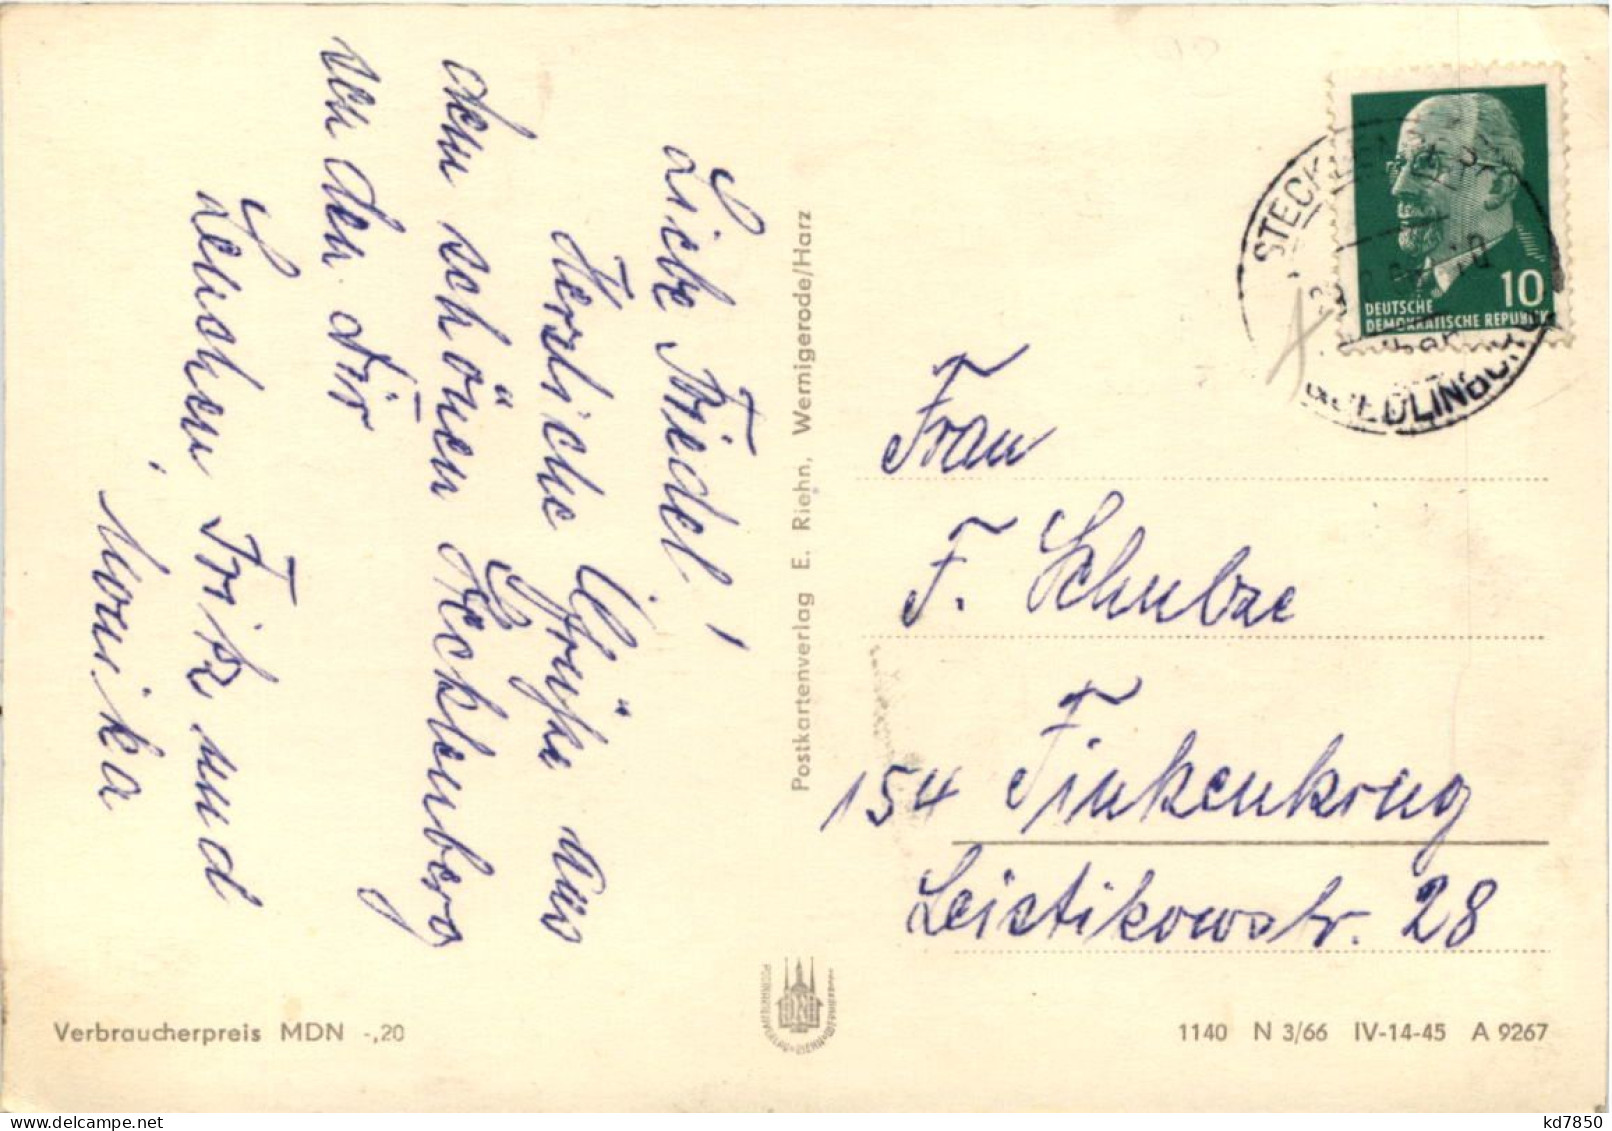 Liebe Friedel!
Herzliche Grüße aus
dem schönen Stecklenberg
senden Dir
Lenchen, Fritz und
Monika
Postkartenverlag E. Riehn, Wernigerode/Harz
10
DEUTSCHE
DEMOKRATISCHE REPUBLIK
Frau
F. Schulze
154 Finkenkrug
Leistikowstr. 28
Verbraucherpreis MDN -,20
1140 N 3/66 IV-14-45 A 9267
www.delcampe.net
kd7850